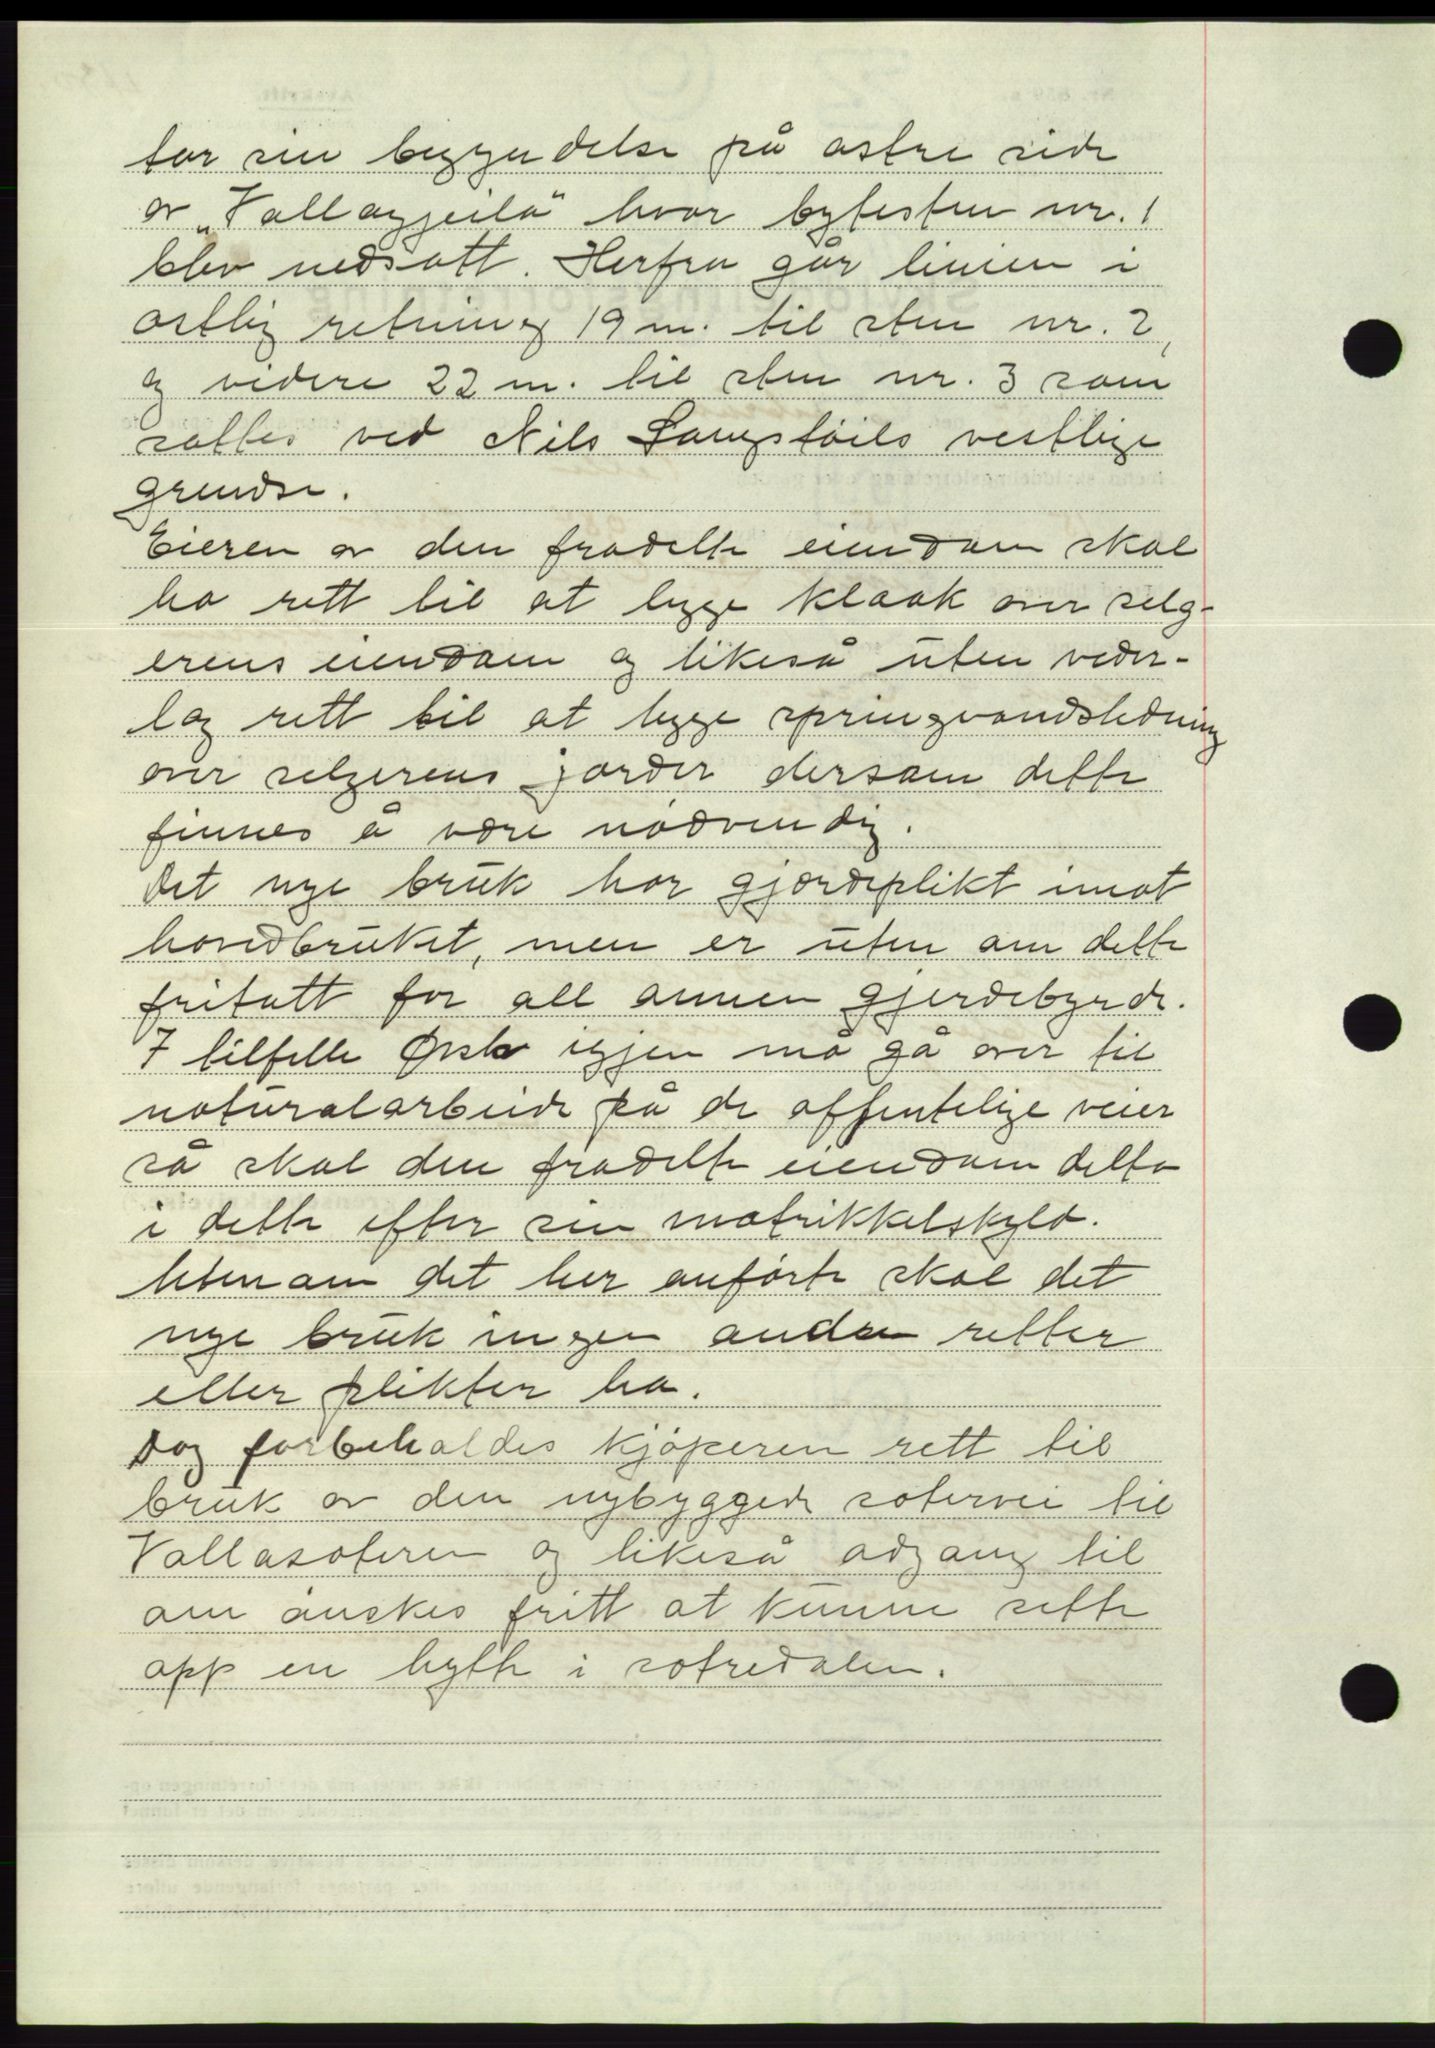 tar sin begyndelse på østre side
av „Vallagjeila" hvor bytesten nr. 1
blev nedsatt. Herfra går linien i
østlig retning 19 m. til sten nr. 2,
og videre 22 m. til sten nr. 3 som
sattes ved Nils Langstöils vestlige
grendse.
Eieren av den fradelte eiendom skal
ha rett til at legge kloak over selg-
erens eiendom og likeså uten veder-
lag rett til at legge springvandsledning
over selgerens jorder dersom dette
finnes å være nödvendig.
Det nye bruk har gjærdeplikt imot
hovedbruket, men er uten om dette
fritatt for all annen gjerdebyrde.
I tilfelle Ørsta igjen må gå over til
naturalarbeide på de offentelige veier
så skal den fradelte eiendom delta
i dette efter sin matrikkelskyld.
Uten om det her anförte skal det
nye bruk ingen andre retter
eller plikter ha.
Dog forbeholdes kjöperen rett til
bruk av den nybyggede setervei til
Vallasæteren og likeså adgang til
om önskes fritt at kunne sette
opp en hytte i sætredalen.